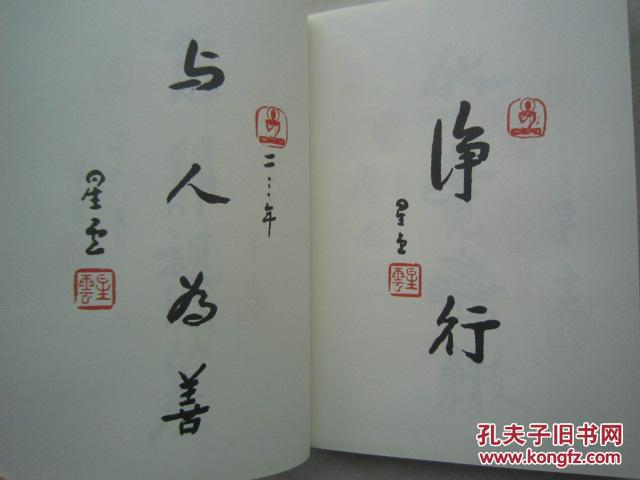 净行
星云
星雲
与人为善
二〇〇〇年
星云
星雲
孔夫子旧书网
www.kongfz.com